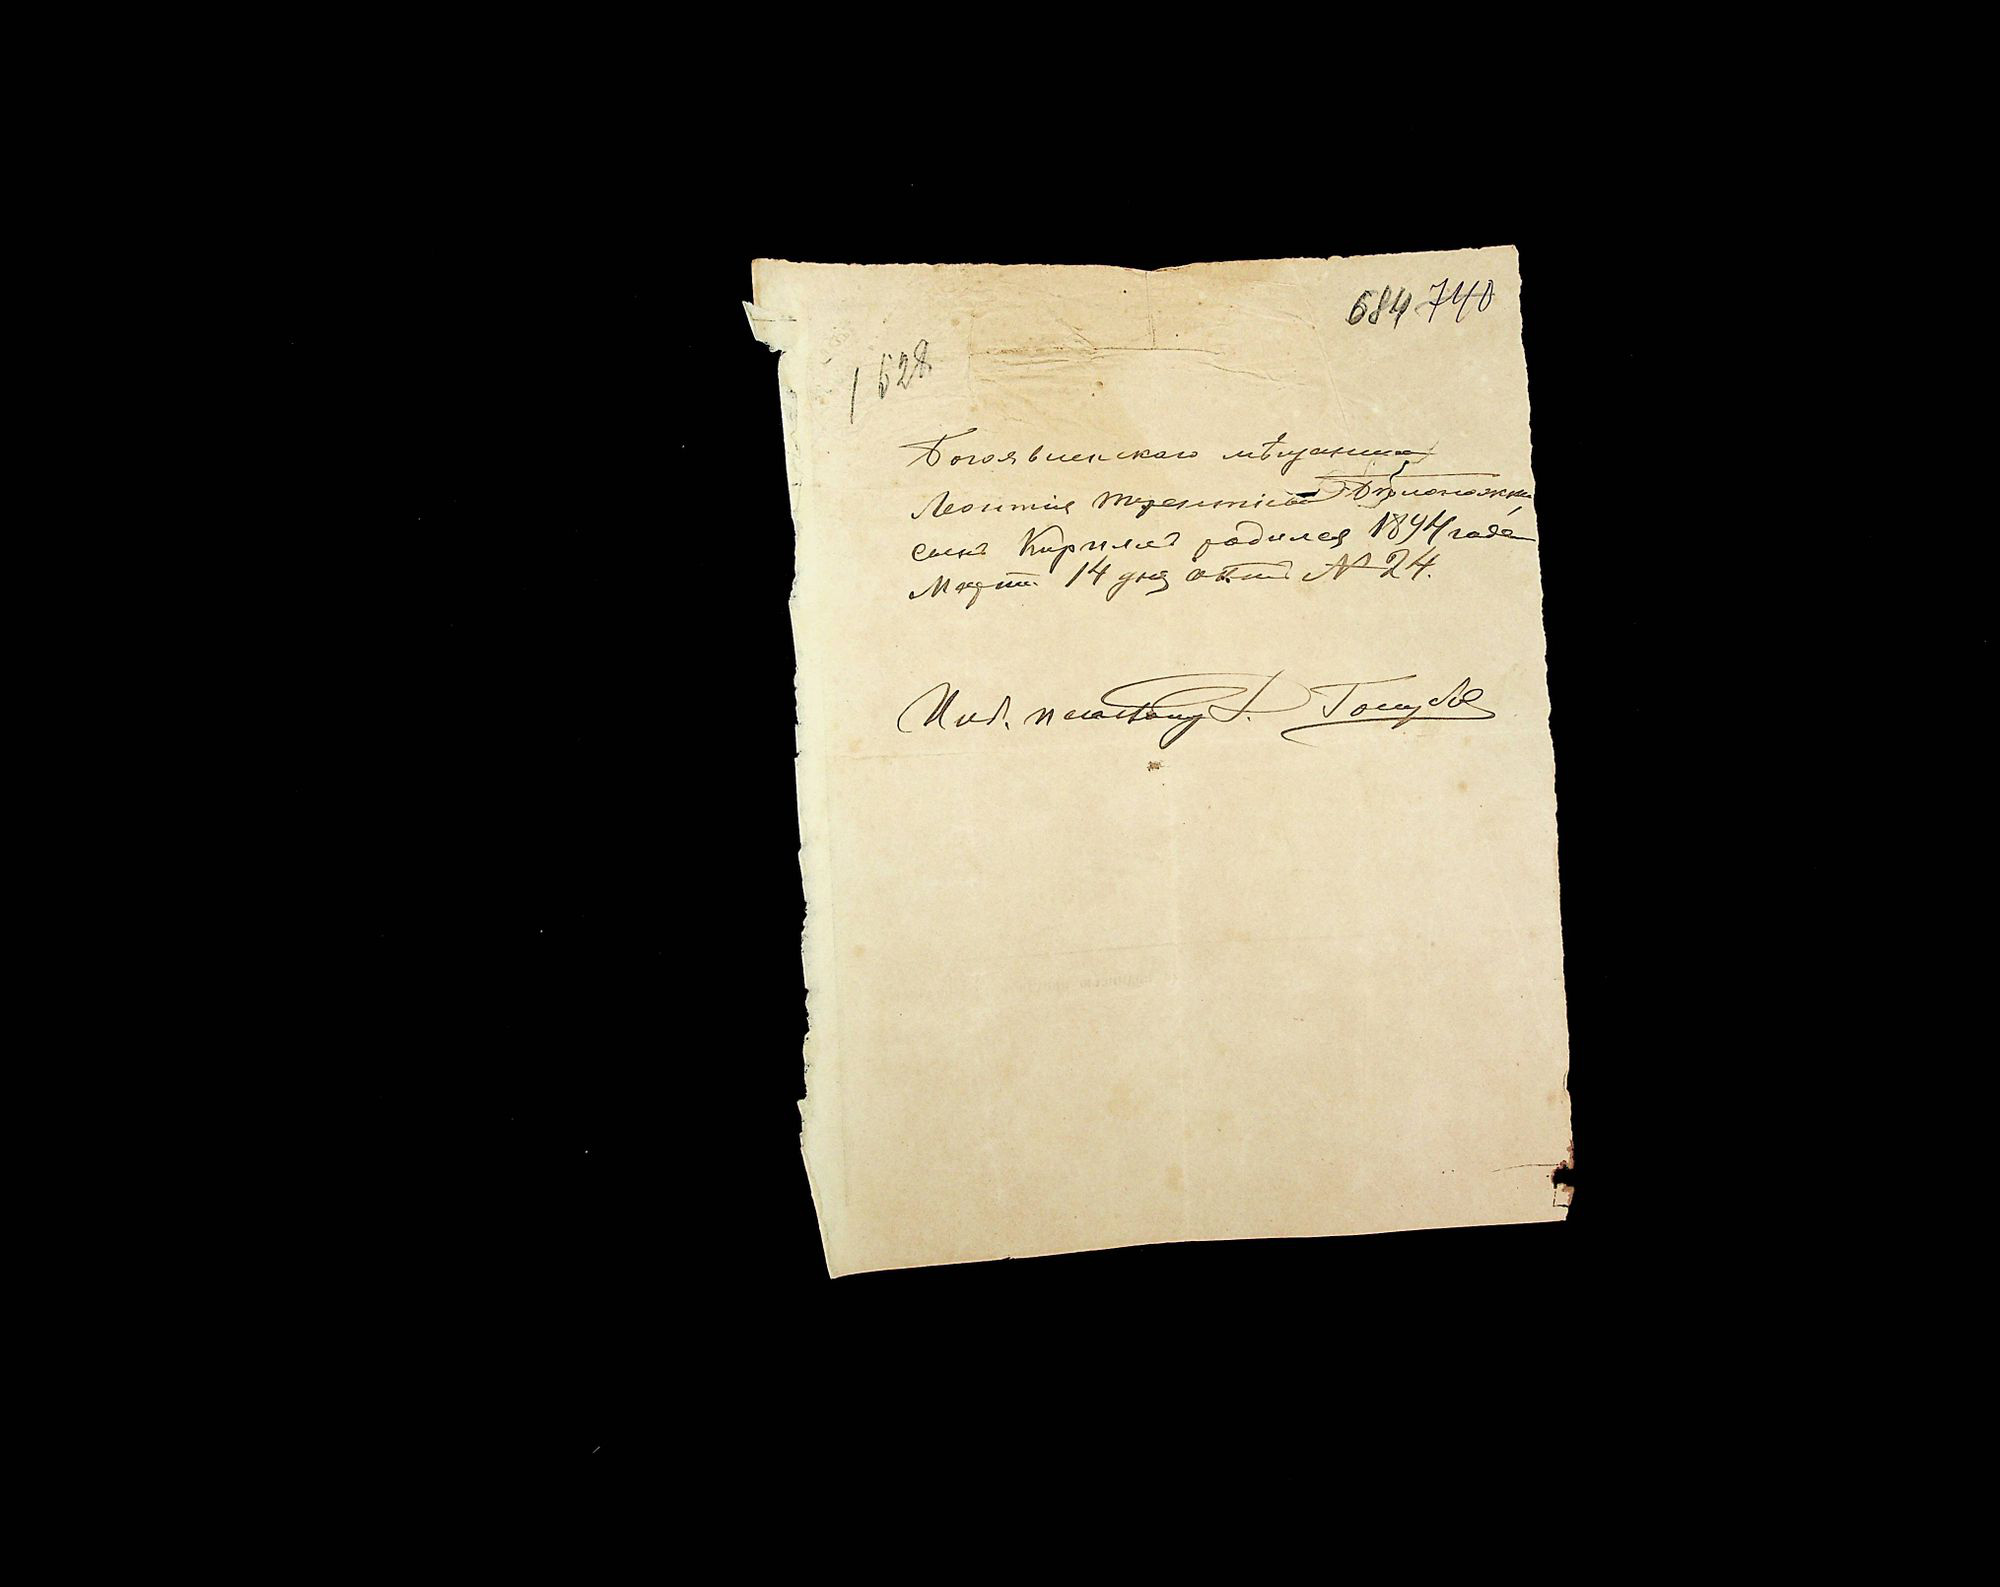 684 740
1628
Богоявленскаго мѣщанина
Леонтія Терентіева Бѣлоножки
сынъ Кирилъ родился 1894 года
Март. 14 дня актъ № 24.
Голубов